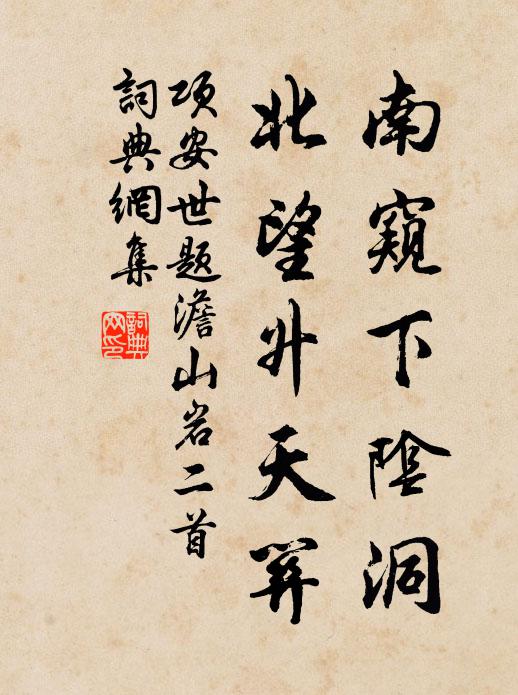 南窺下陰洞
北望升天笄
项安世题澹山岩二首
詞典網集
詞典
网印